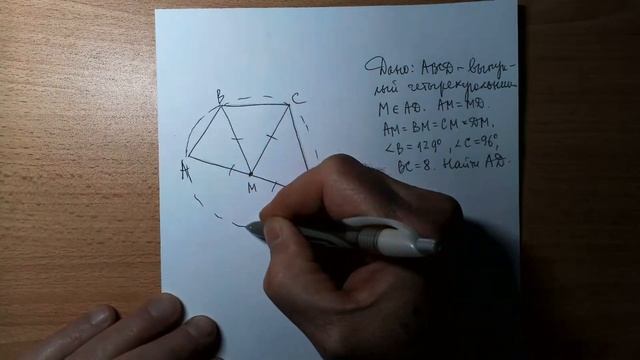 Дано: ABCD – выпук-
лый четырехугольник
M ∈ AD. AM = MD.
AM = BM = CM = DM,
∠B = 129°, ∠C = 96°,
BC = 8. Найти AD.
B
C
A
M